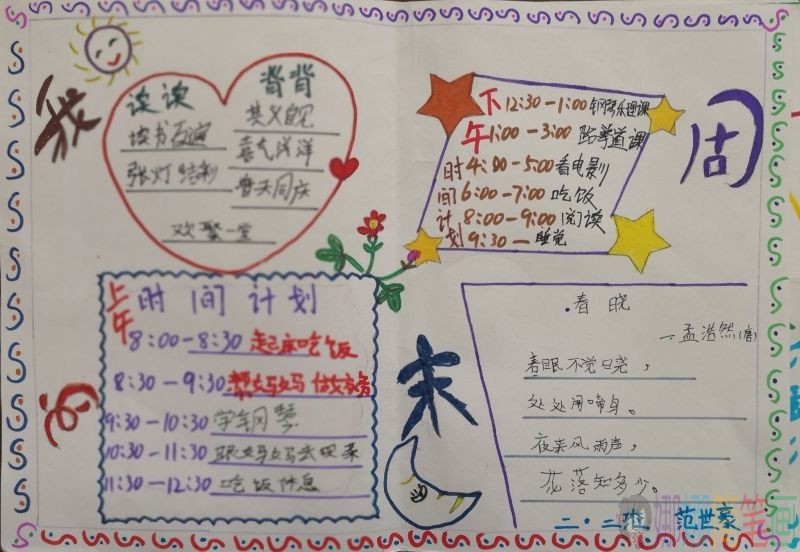 我
的
周
末
读读
背背
其义自见
读书百遍
喜气洋洋
张灯结彩
普天同庆
欢聚一堂
下午时间计划
12:30-1:00 钢琴乐理课
1:00-3:00 跆拳道课
4:00-5:00 看电影
6:00-7:00 吃饭
8:00-9:00 阅读
9:30- 睡觉
上午
时间计划
8:00-8:30 起床吃饭
8:30-9:30 帮妈妈做家务
9:30-10:30 学钢琴
10:30-11:30 跟妈妈去买菜
11:30-12:30 吃饭休息
春晓
—孟浩然(唐)
春眠不觉晓,
处处闻啼鸟。
夜来风雨声,
花落知多少。
二·二班 范世豪